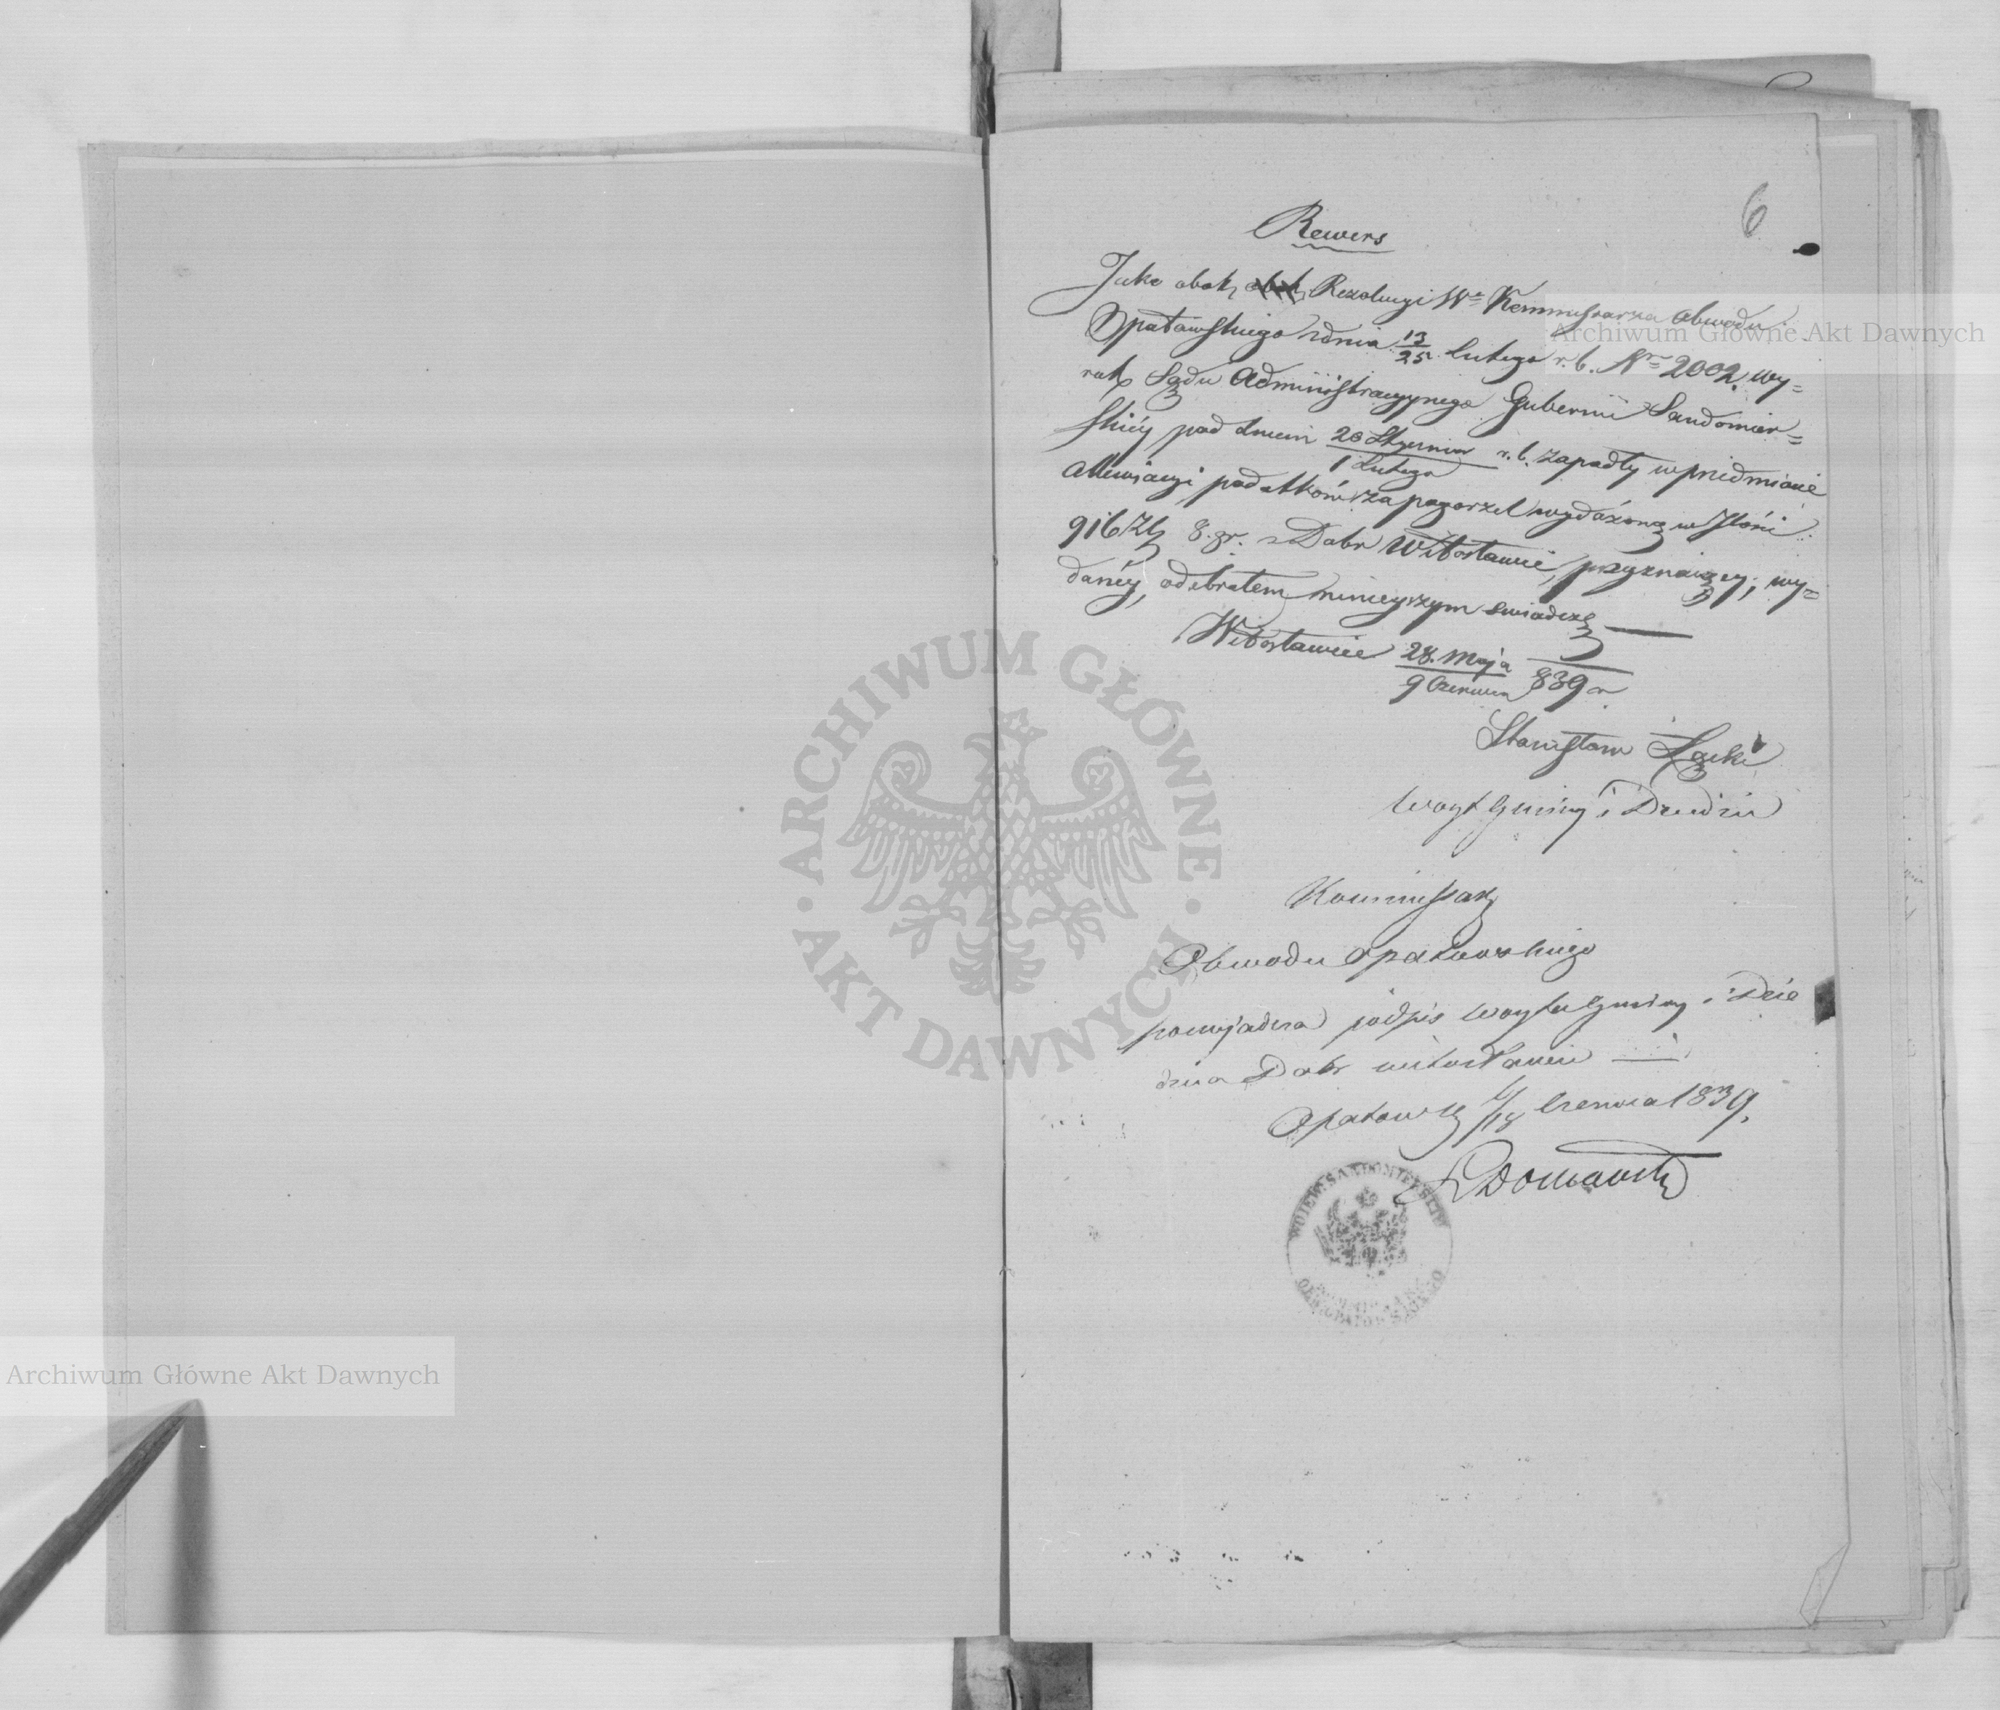 6
Rewers
Jako obok Rezolucyi Wo Kommissarza Obwodu
Opatowskiego z dnia 13/25 Lutego r. b. Nro 2002 wy=
rok Sądu Administracyjnego Gubernii Sandomier=
skiéy pod dniem 20 Stycznia / 1 Lutego r. b. zapadły w przedmiocie
allewiacyi podatków za pogorzel wydarzoną w Ilości
916 Zł 8. gr. z Dobr Witosławic, przyznaiący, wy=
danéy, odebrałem ninieyszym swiadczę
Witosławice 28. Maja / 9 Czerwca 839 r
Stanisław Łącki
Woyt Gminy i Dziedzic
Kommissarz
Obwodu Opatowskiego
poswjadcza podpis Woyta Gminy i Dzie
dzica Dobr Witosławic
Opatow d 6/18 Czerwca 1839.
WOJEW: SANDOMIERSKIE
Archiwum Główne Akt Dawnych
ARCHIWUM GŁÓWNE · AKT DAWNYCH ·
Archiwum Główne Akt Dawnych